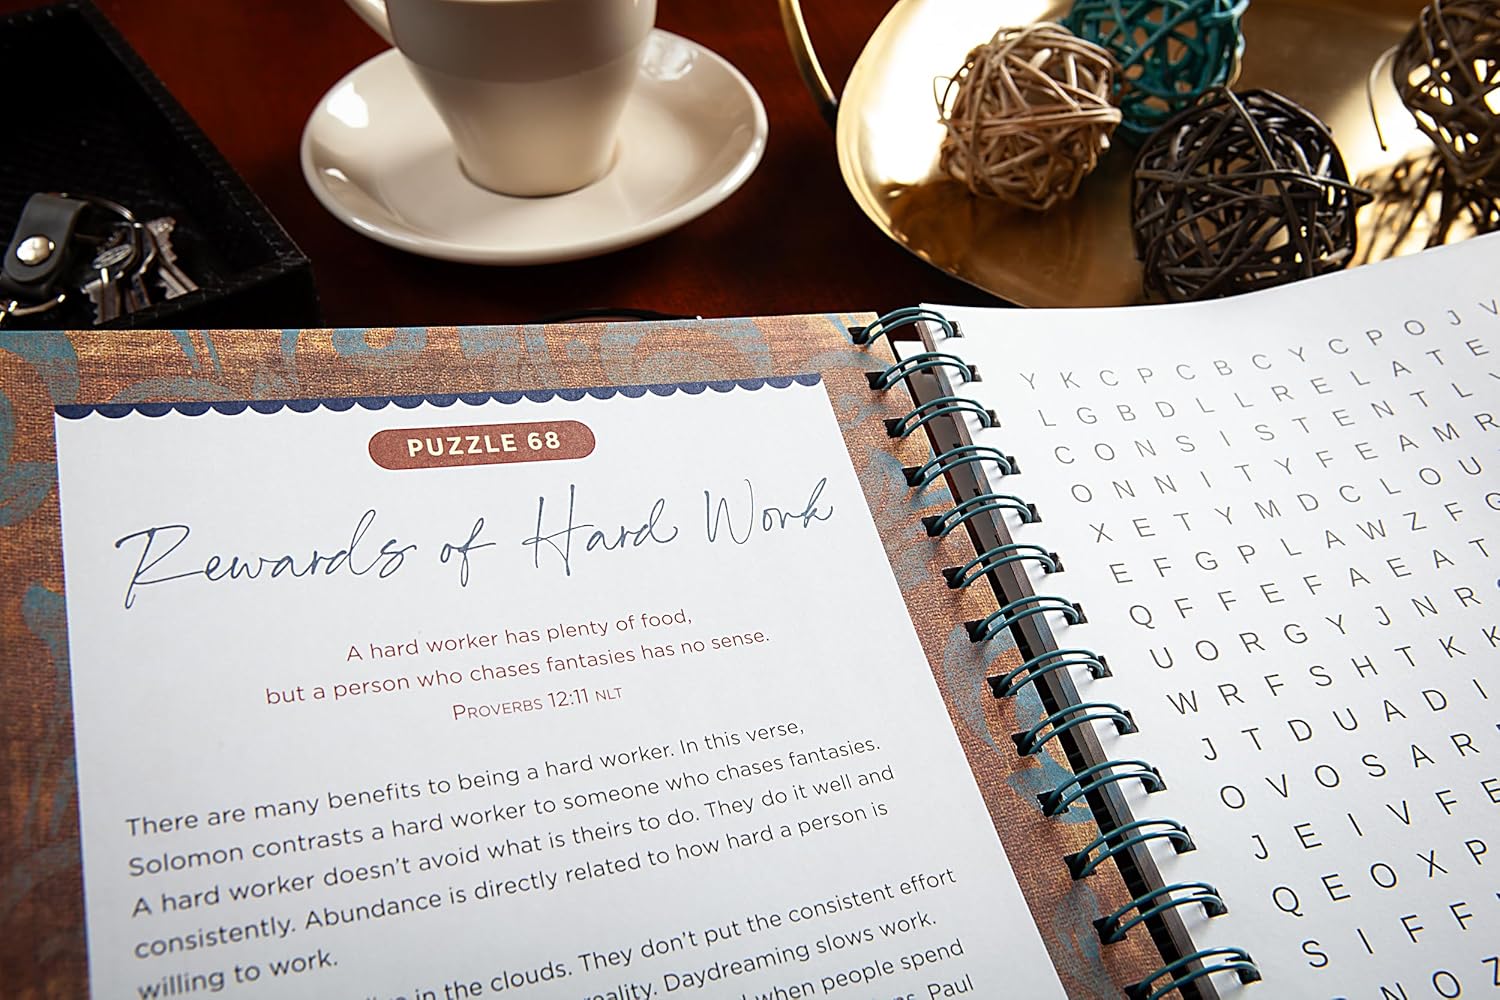 PUZZLE 68
Rewards of Hard Work
A hard worker has plenty of food,
but a person who chases fantasies has no sense.
PROVERBS 12:11 NLT
There are many benefits to being a hard worker. In this verse,
Solomon contrasts a hard worker to someone who chases fantasies.
A hard worker doesn't avoid what is theirs to do. They do it well and
consistently. Abundance is directly related to how hard a person is
willing to work.
in the clouds. They don't put the consistent effort
Daydreaming slows work.
when people spend
Paul
Y K C P C B C Y C P O J V
L G B D L L R E L A T E
C O N S I S T E N T L Y
O N N I T Y F E A M R
X E T Y M D C L O U
E F G P L A W Z F
Q F F E F A E A T
U O R G Y J N R
W R F S H T K K
J T D U A D I
O V O S A R
J E I V F E
Q E O X P
S I F F
N O Z